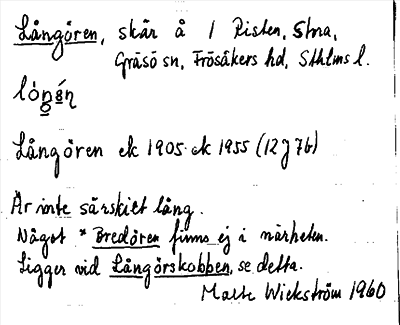 Långören, skär å / Risten, Sbna,
Gräsö sn, Frösåkers hd, Sthlms l.
Långören ek 1905 ek 1955 (12J7b)
Är inte särskilt lång.
Något * Bredören finns ej i närheten.
Ligger vid Långörskobben, se detta.
Malte Wickström 1960